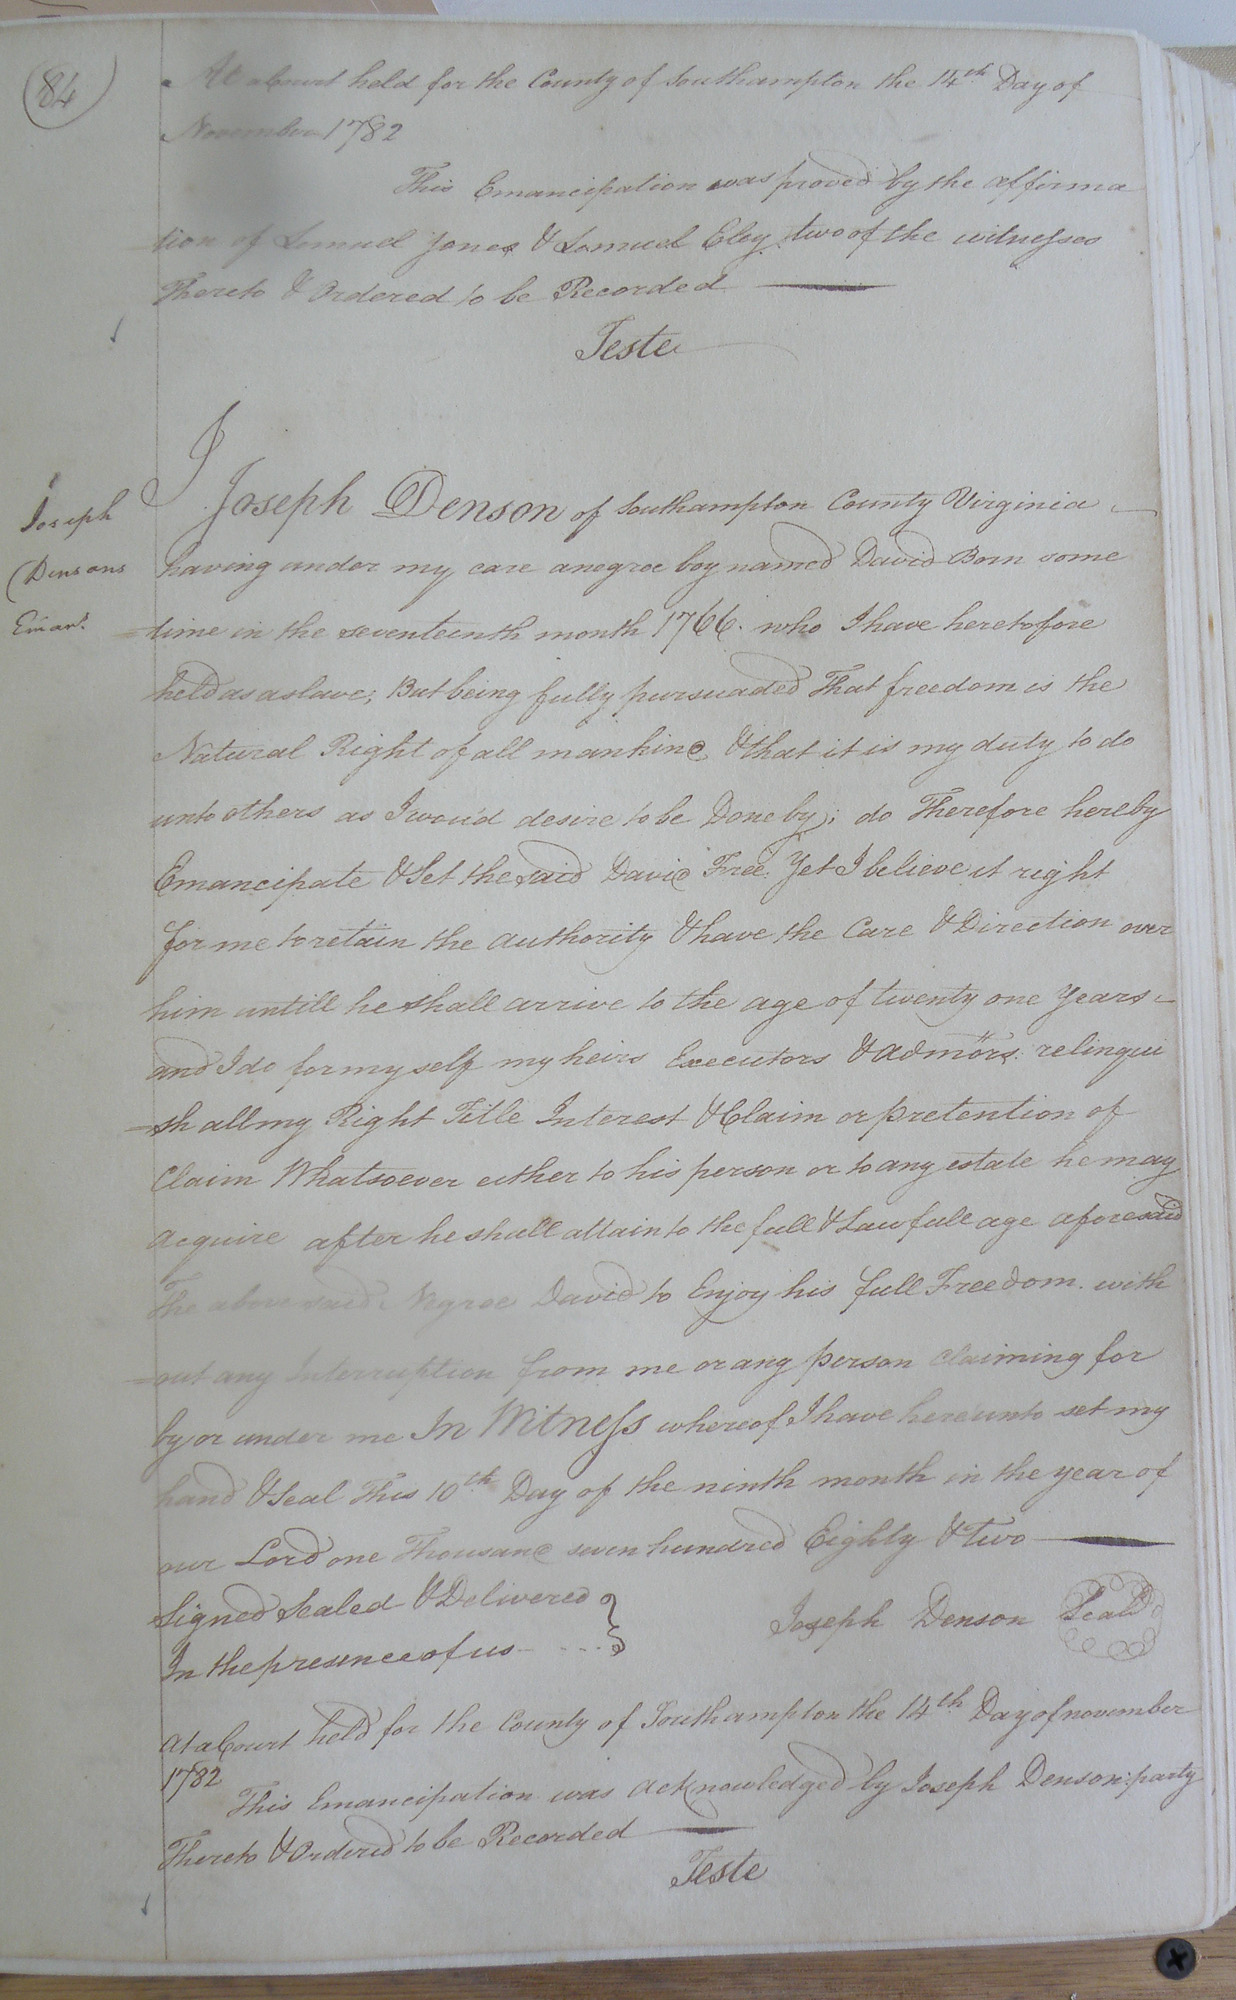 84
At a Court held for the County of Southampton the 14th Day of
November 1782
This Emancipation was proved by the affirma
tion of Lemuel Jones & Samuel Eley two of the witnesses
Thereto & Ordered to be Recorded
Teste
I
Joseph Denson of Southampton County Virginia
Joseph
Densons
Eman.
having under my care a negroe boy named David Born some
=time in the seventeenth month 1766. who I have heretofore
held as a slave; But being fully pursuaded That freedom is the
Natural Right of all mankind & that it is my duty to do
unto others as I wou'd desire to be Done by; do Therefore hereby
Emancipate & Set the said David Free. Yet I believe it right
for me to retain the authority & have the Care & Direction over
him untill he shall arrive to the age of twenty one Years=
and I do for my self my heirs Executors & Admors. relinqui
=sh all my Right Title Interest & Claim or pretention of
Claim Whatsoever either to his person or to any estate he may
acquire after he shall attain to the full & Lawfull age aforesaid
The above said Negroe David to Enjoy his full Freedom. with
=out any Interruption from me or any person claiming for
by or under me In Witness whereof I have hereunto set my
hand & Seal This 10th Day of the ninth month in the year of
our Lord one Thousand seven hundred Eighty & Two
Signed Sealed & Delivered
In the presence of us
Joseph Denson Seal
At a Court held for the County of Southampton the 14th Day of november
1782
This Emancipation was acknowledged by Joseph Denson party
Thereto & Ordered to be Recorded
Teste